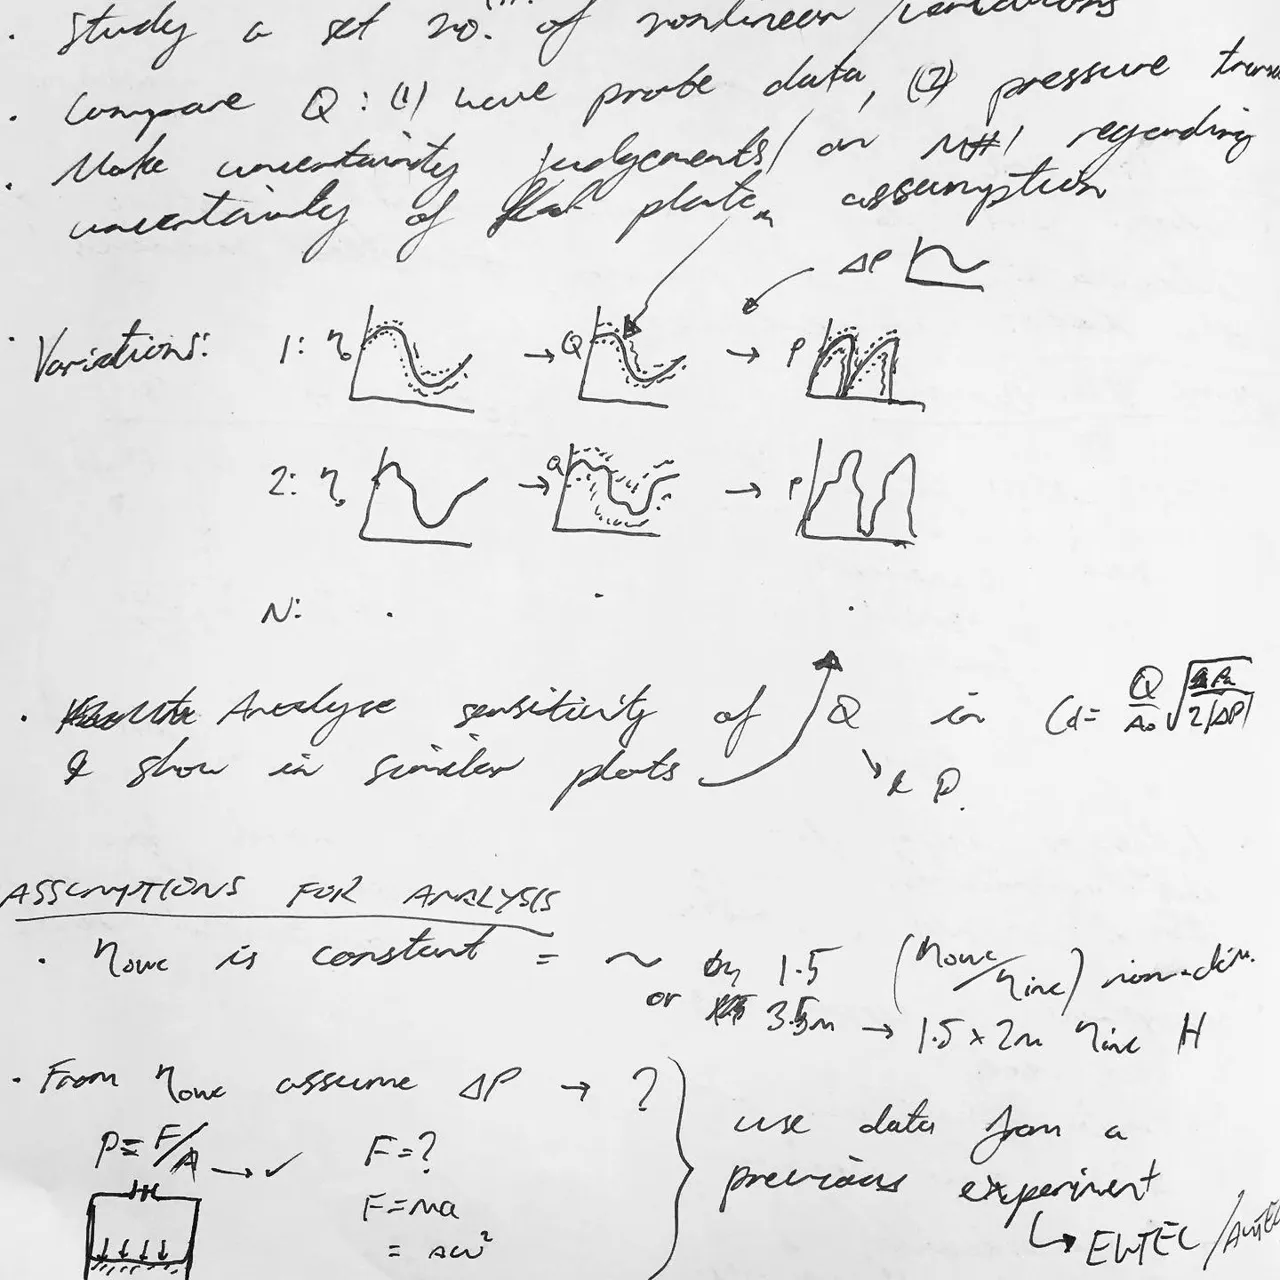 · Study a set no. of nonlinear variations
· Compare Q: (1) wave probe data, (2) pressure
· Make uncertainty judgements on M#1 regarding
uncertainty of flat plate assumption
ΔP
· Variations: 1: η → Q → P
2: η → Q → P
N: . . .
· Analyse sensitivity of Q in Cd = Q/A₀ √ 2|ΔP|
& show in similar plots & P.
ASSUMPTIONS FOR ANALYSIS
· ηowc is constant = ~ by 1.5 (ηowc/ηinc) non-dim.
or 3.5m → 1.5 x 2m ηinc H
· From ηowc assume ΔP → ?
P = F/A → ✓ F = ?
F = ma
= aω²
use data from a
previous experiment
EWTEC / AWTEC